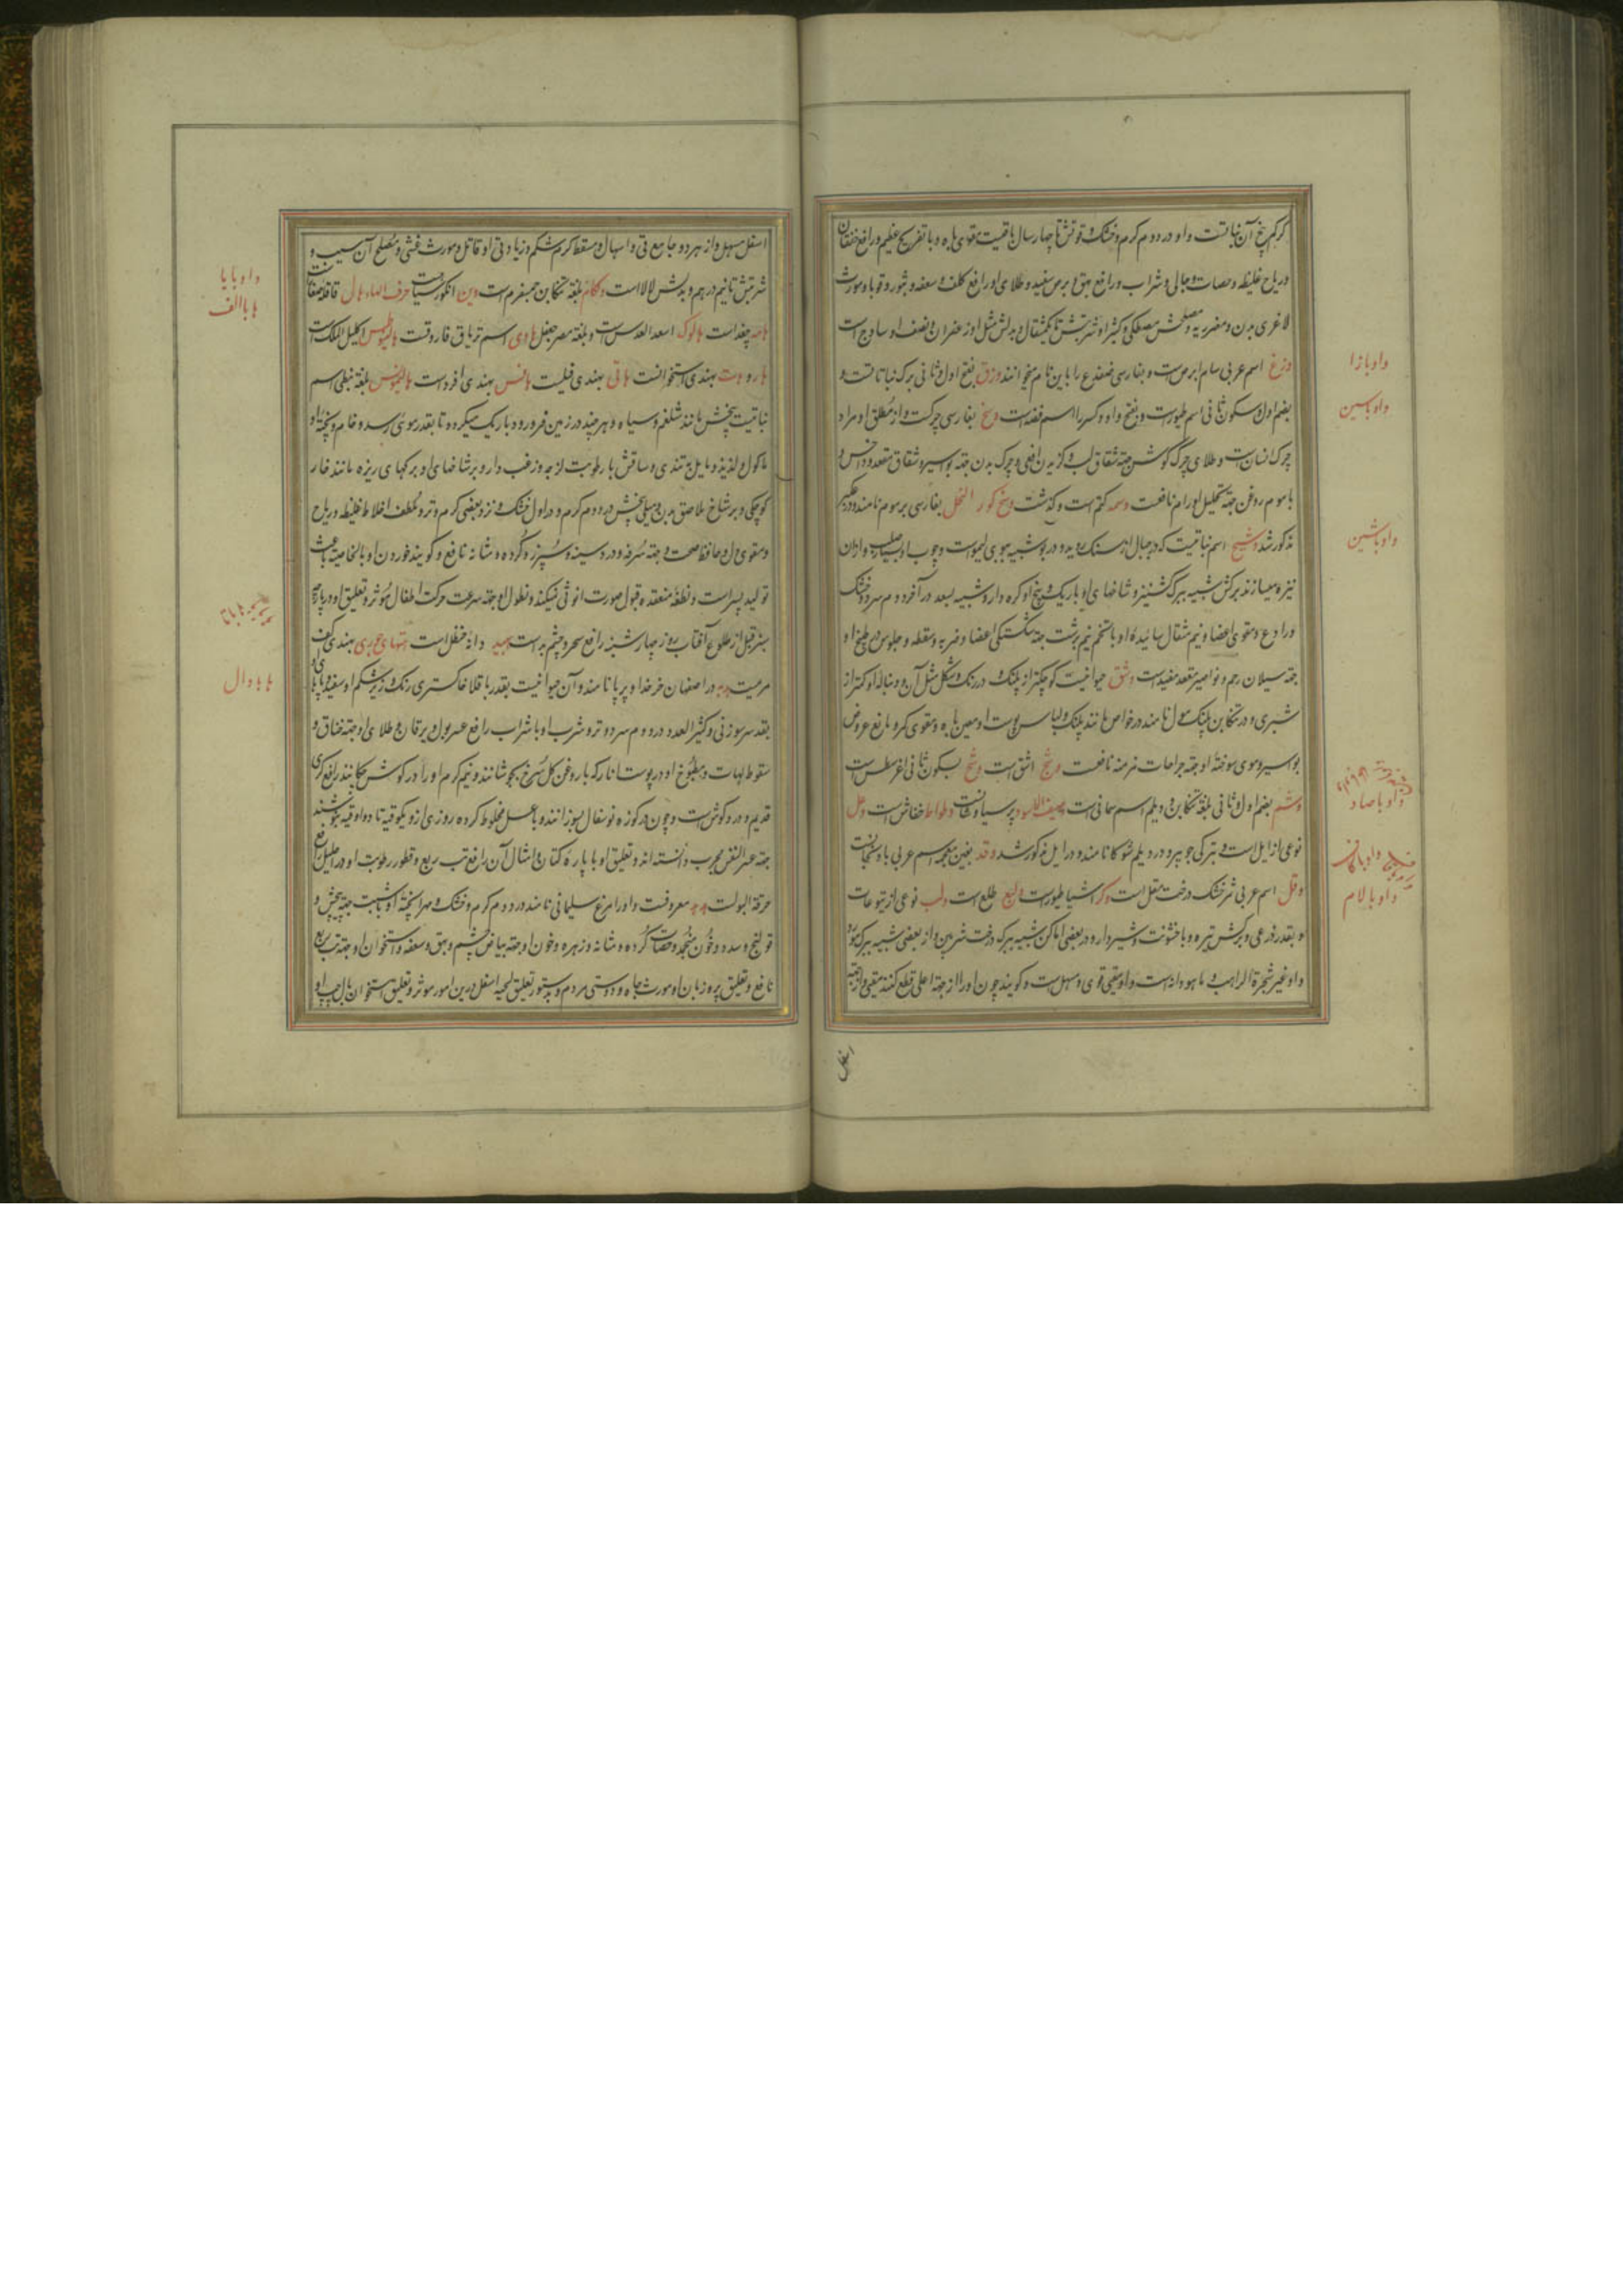 کرکم بیخ آن نباتست و او در دوم کرم و خشک و قوتش تا چهار سال باقیست مقوی باه و با تفریح عظیم و رافع خفقان
و ریاح غلیظه و حصات و جالی و شراب و رافع بهق و برص سفید و طلای او رافع کلف و سعفه و بثور و قوبا و مورث
لاغری بدن و مضر ریه و مصلحش مصطکی و کثیرا و شربتش تا یکمثقال و بدلش مثل او زعفران و نصف او سادج است
واو با زا
وزغ اسم عربی سام ابرص است و بفارسی ضفدع را باین نام میخوانند وزق بفتح اول و ثانی برک نباتاتست و
بضم اول و سکون ثانی اسم طیورست و بفتح واو و کسر را اسم فضه است وسخ بفارسی چرکست و از مطلق او مراد
واو باسین
چرک انسان است و طلای چرک کوش جهة شقاق لب و کزیدن افعی و چرک بدن جهة بواسیر و شقاق مقعد و داخس و
با موم روغن جهة تحلیل اورام نافعست وسمه کتم است و کذشت وسخ کور النحل بفارسی برموم نامند و در عکبر
مذکور شد وشیح اسم نباتیست که در جبال و سنک روید و در بو شبیه ببوی لیموست و چوب او بسیار صلب و ازان
واو باشین
نیزه میسازند برکش شبیه ببرک کشنیز و شاخهای او باریک و بیخ او کره دار و شبیه بسعد در آخر دوم سرد و خشک
و رادع و مقوی اعضا و نیم مثقال سائیده او با تخم نیم برشت جهة شکستکی اعضا و ضربه و سقطه و جلوس در طبیخ او
جهة سیلان رحم و نواصیر مقعد مفیدست وشق حیوانیست کوچکتر از پلنک و در رنک و شکل مثل آن و دنباله او کمتر از
شبری و در تنکابن پلنک مول نامند در خواص مانند پلنک و لباس پوست او معین باه و مقوی کمر و مانع عروض
بواسیر و موی سوخته او جهة جراحات مزمنه نافعست وشج اشق است وشخ بسکون ثانی اغرسطس است
وشم بضم اول و ثانی بلغة تنکابن و دیلم اسم سمانی است وصیف الاسود پرسیاوشانست وطواط خفاش است وعل
واو باصاد
نوعی از ایل است و بترکی جویر و در دیلم شوکا نامند و در ایل مذکور شد وغد بغین معجمه اسم عربی بادنجانست
واو باکاف
وقل اسم عربی ثمر خشک درخت مقل است وکر آشیانه طیورست ولیع طلع است ولب نوعی از یتوعات
واو بالام
و بقدر ذرعی و برکش تیره و با خشونت و شیردار و در بعضی اماکن شبیه ببرک درخت شربین و از بعضی شبیه ببرک مورد
و او غیر شجرة الراهب و ماهودانه است و او مقیئ قوی و مسهل است و کویند چون او را از جهة اعلی قطع کنند مقیئ و از جهة
اسفل
اسفل مسهل و از هر دو جامع قی و اسهال و مسقط کرم شکم و زیادتی او قاتل و مورث غشی و مصلح آن سیب و
شربتش تا نیم درهم و بدلش لالا است وکام بلغة تنکابن حبسفرم است وین انکور سیاهست حرف الهاء هال قاقله صغارست
واو بایا
ها باالف
هامه چغداست هالوک اسد العدس است و بلغة مصر جعفل هادی اسم تریاق فاروقست هالیطوس اکلیل الملک است
هارو وت بهندی استخوانست هاتی بهندی فیلست هانس بهندی افرد است هالیموس بلغة نبطی اسم
نباتیست بیخش مانند شلغم و سیاه و هر چند در زمین فرو رود باریک میکردد تا بقدر موی رسد و خام و پخته او
ماکول و لذیذ و مایل بتندی و ساقش با رطوبت لزجه و زغب دار و بر شاخهای او برکهای ریزه مانند خار
کوچکی و بر شاخ ملاصق بدرجه میلی بخش در دوم کرم و در اول خشک و نزد بعضی کرم و تر و ملطف اخلاط غلیظه و ریاح
و مقوی دل و حافظ صحت و جهة سرفه و درد سینه و سپرز و کرده و مثانه نافع و کویند خوردن او بالخاصیه باعث
تولید پسر است و نطفه منعقده قبول صورت انوثی نمیکند و نطول او جهة سرعت حرکت اطفال مؤثر و تعلیق او در پارچه
سبز قبل از طلوع آفتاب روز چهار شنبه رافع سحر و چشم بد است هبید دانه حنظل است هتهای جوری بهندی کف
مریمیست هدبه در اصفهان خر خدا و پر پا نامند و آن حیوانیست بقدر باقلا خاکستری رنک و زیر شکم او سفید و پاهای او
ها با دال
بقدر سر سوزنی و کثیر العدد در دوم سرد و تر و شرب او با شراب رافع عسر بول و یرقان و طلای او جهة خناق و
سقوط لهات و مطبوخ او در پوست انار که با روغن کل سرخ بجوشانند و نیم کرم او را در کوش چکانند رافع کری
قدیم و درد کوش است و چون در کوزه نو سفال بسوزانند و با عسل مخلوط کرده روزی از و یکوقیه تا دو اوقیه بنوشند
جهة عسر النفس مجرب دانسته اند و تعلیق او با پاره کتان و امثال آن رافع تب ربع و قطور رطوبت او در احلیل رافع
حرقة البولست هدهد معروفست و او را مرغ سلیمانی نامند در دوم کرم و خشک و مهرا پخته او با شبت جهة پیچش و
قولنج و سدد و خون منجمد و حصات کرده و مثانه و زهره و خون او جهة بیاض چشم و بهق و سعفه و استخوان او جهة تب ربع
نافع و تعلیق پر و زبان او مورث جاه و دوستی مردم و بدستور تعلیق لحیه اسفل درین امور مؤثر و تعلیق استخوان بال چپ او